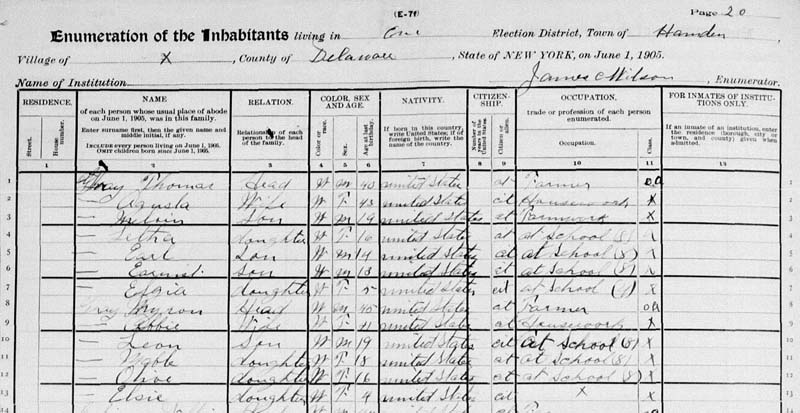 (E-7f)
Page 20
Enumeration of the Inhabitants living in One Election District, Town of Hamden
Village of X, County of Delaware, State of NEW YORK, on June 1, 1905.
Name of Institution James C Wilson, Enumerator.
RESIDENCE. NAME RELATION. COLOR, SEX AND AGE. NATIVITY. CITIZENSHIP. OCCUPATION, FOR INMATES OF INSTITUTIONS ONLY.
Street. House number. of each person whose usual place of abode on June 1, 1905, was in this family. Enter surname first, then the given name and middle initial, if any. INCLUDE every person living on June 1, 1905. OMIT children born since June 1, 1905. Relationship of each person to the head of the family. Color or race. Sex. Age at last birthday. If born in this country, write United States; if of foreign birth, write the name of the country. Number of years in the United States. Citizen or alien. trade or profession of each person enumerated. Occupation. Class. If an inmate of an institution, enter the residence (borough, city or town, and county) given when admitted.
1 2 3 4 5 6 7 8 9 10 11 12
1 Gray Thomas Head W M 43 United States cit Farmer oa
2 — Agusta Wife W F 43 United States cit Housework X
3 — Melvin Son W M 19 United States cit Farmwork X
4 — Letha daughter W F 16 United States cit at School (8) X
5 — Earl Son W M 14 United States cit at School (8) X
6 — Earnest Son W M 13 United States cit at School (8) X
7 — daughter W F United States cit at School X
8 Gray Myron Head W M 45 United States cit Farmer oa
9 — Abbie Wife W F 41 United States cit Housework X
10 — Leon Son W M 19 United States cit at School (8) X
11 — Mable daughter W F 18 United States cit at School (8) X
12 — Olive daughter W F 16 United States cit at School (8) X
13 — Elsie daughter W F 4 United States cit X X